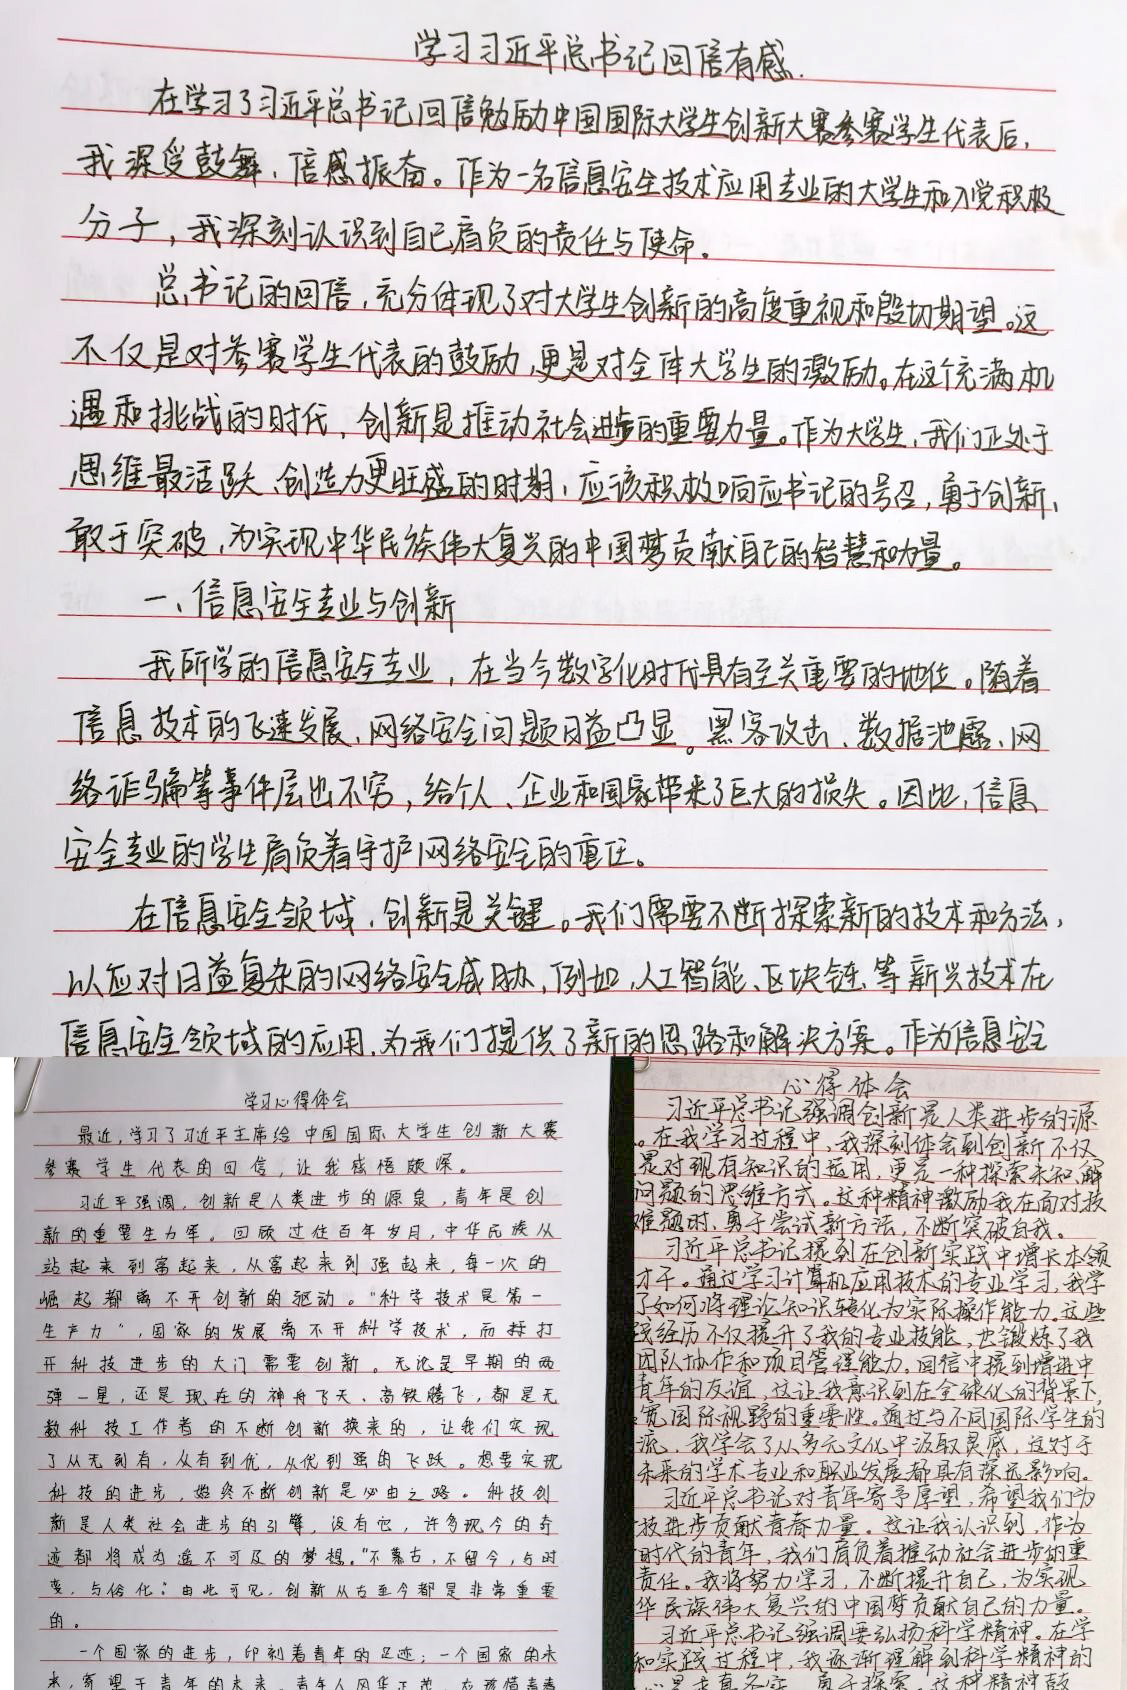 学习习近平总书记回信有感.
在学习了习近平总书记回信勉励中国国际大学生创新大赛参赛学生代表后,
我深受鼓舞、倍感振奋。作为一名信息安全技术应用专业的大学生和入党积极
分子,我深刻认识到自己肩负的责任与使命。
总书记的回信,充分体现了对大学生创新的高度重视和殷切期望。这
不仅是对参赛学生代表的鼓励,更是对全体大学生的激励。在这个充满机
遇和挑战的时代,创新是推动社会进步的重要力量。作为大学生,我们正处于
思维最活跃、创造力更旺盛的时期,应该积极响应书记的号召,勇于创新、
敢于突破,为实现中华民族伟大复兴的中国梦贡献自己的智慧和力量。
一、信息安全专业与创新
我所学的信息安全专业,在当今数字化时代具有至关重要的地位。随着
信息技术的飞速发展,网络安全问题日益凸显。黑客攻击、数据泄露、网
络诈骗等事件层出不穷,给个人、企业和国家带来了巨大的损失。因此,信息
安全专业的学生肩负着守护网络安全的重任。
在信息安全领域,创新是关键。我们需要不断探索新的技术和方法,
以应对日益复杂的网络安全威胁,例如,人工智能、区块链等新兴技术在
信息安全领域的应用,为我们提供了新的思路和解决方案。作为信息安全
学习心得体会
最近,学习了习近平主席给中国国际大学生创新大赛
参赛学生代表的回信,让我感悟颇深。
习近平强调,创新是人类进步的源泉,青年是创
新的重要生力军。回顾过往百年岁月,中华民族从
站起来到富起来,从富起来到强起来,每一次的
崛起都离不开创新的驱动。"科学技术是第一
生产力",国家的发展离不开科学技术,而打
开科技进步的大门需要创新。无论是早期的两
弹一星,还是现在的神舟飞天、高铁腾飞,都是无
数科技工作者的不断创新换来的,让我们实现
了从无到有,从有到优,从优到强的飞跃。想要实现
科技的进步,始终不断创新是必由之路。科技创
新是人类社会进步的引擎,没有它,许多现今的奇
迹都将成为遥不可及的梦想。"不慕古,不留今,与时
变,与俗化",由此可见,创新从古至今都是非常重要
的。
一个国家的进步,印刻着青年的足迹;一个国家的未
来,寄望于青年的未来。青年人风华正茂,应该借青春
心得体会
习近平总书记强调创新是人类进步的源
。在我学习过程中,我深刻体会到创新不仅
是对现有知识的运用,更是一种探索未知、解
问题的思维方式。这种精神激励我在面对技
难题时,勇于尝试新方法,不断突破自我。
习近平总书记提到在创新实践中增长本领
才干。通过学习计算机应用技术的专业学习,我学
了如何将理论知识转化为实际操作能力。这些
践经历不仅提升了我的专业技能,也锻炼了我
团队协作和项目管理能力。回信中提到增进中
青年的友谊,这让我意识到在全球化的背景下,
宽国际视野的重要性。通过与不同国际学生的
流,我学会了从多元文化中汲取灵感,这对于
未来的学术专业和职业发展都具有深远影响。
习近平总书记对青年寄予厚望,希望我们为
技进步贡献青春力量。这让我认识到,作为
时代的青年,我们肩负着推动社会进步的重
责任。我将努力学习,不断提升自己,为实现
华民族伟大复兴的中国梦贡献自己的力量。
习近平总书记强调要弘扬科学精神。在学
和实践过程中,我逐渐理解到科学精神的
心是求真务实、勇于探索。这种精神鼓